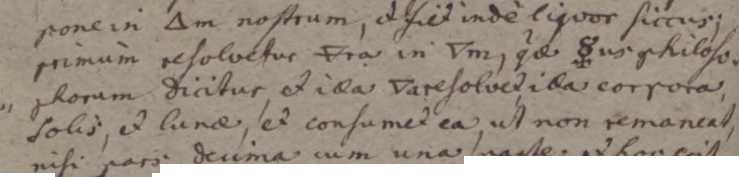 pone in △m nostrum, et fiet inde liquor siccus;
primum resolvetur ▽ra in ▽m, quæ ☿us philoso-
phorum dicitur, et illa ▽a resolvet illa corpora,
solis, et lunæ, et consumet ea, ut non remaneat,
nisi pars decima cum una parte; et hoc erit